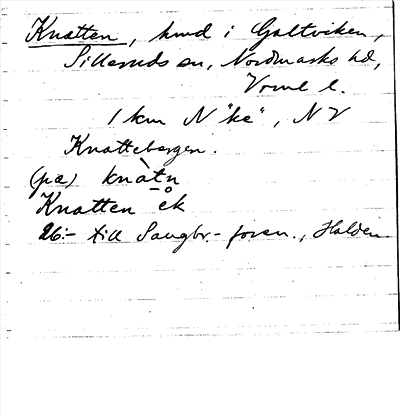 Knatten, hmd i Galtviken,
Silleruds sn, Nordmarks hd,
Vrml l.
1 km N "ke", NV
Knattebergen.
(på) knàtn̥
Knatten ek
26:- till Saugbr.- foren., Halden